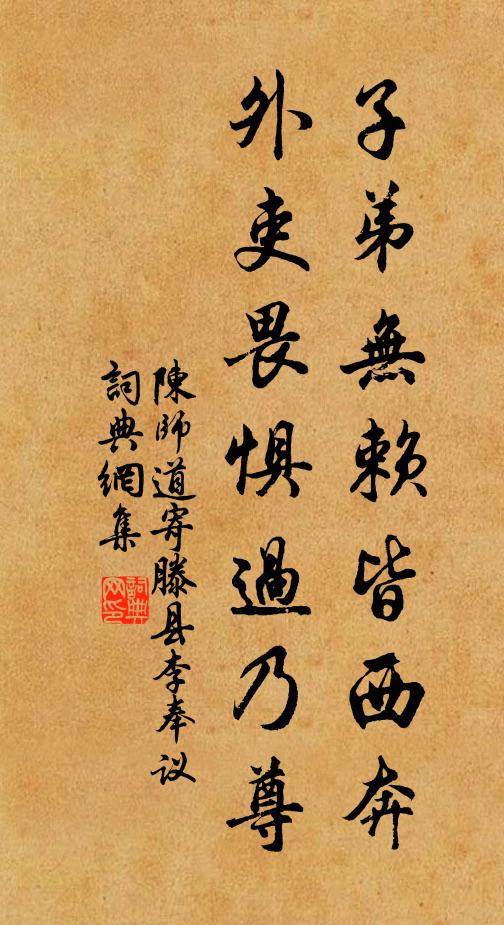 子弟無賴皆西奔
外吏畏惧過乃尊
陳師道寄滕县李奉议
詞典網集
詞典網印